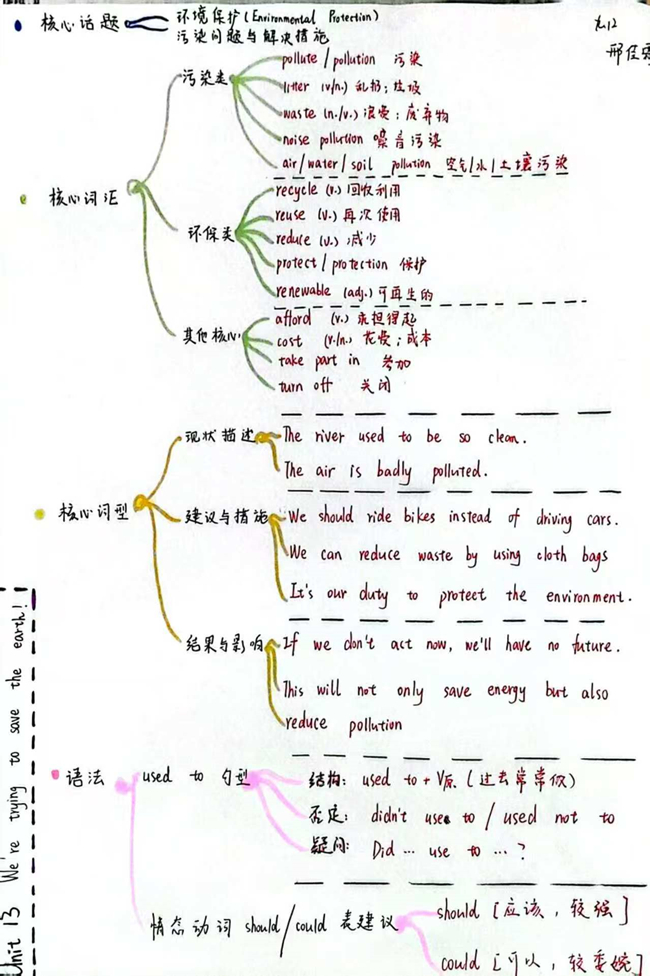 核心话题
环境保护(Environmental Protection)
污染问题与解决措施
九12
核心词汇
污染类
pollute / pollution 污染
litter (v/n.) 乱扔; 垃圾
waste (n./v.) 浪费; 废弃物
noise pollution 噪音污染
air/water/soil pollution 空气/水/土壤污染
环保类
recycle (v.) 回收利用
reuse (v.) 再次使用
reduce (v.) 减少
protect / protection 保护
renewable (adj.) 可再生的
其他核心
afford (v.) 承担得起
cost (v./n.) 花费; 成本
take part in 参加
turn off 关闭
核心词型
现状描述
The river used to be so clean.
The air is badly polluted.
建议与措施
We should ride bikes instead of driving cars.
We can reduce waste by using cloth bags
It's our duty to protect the environment.
结果与影响
If we don't act now, we'll have no future.
This will not only save energy but also
reduce pollution
语法
used to 句型
结构: used to + V原 (过去常常做)
否定: didn't use to / used not to
疑问: Did … use to … ?
情态动词 should/could 表建议
should [应该, 较强]
could [可以, 较委婉]
Unit 13 We're trying to save the earth!